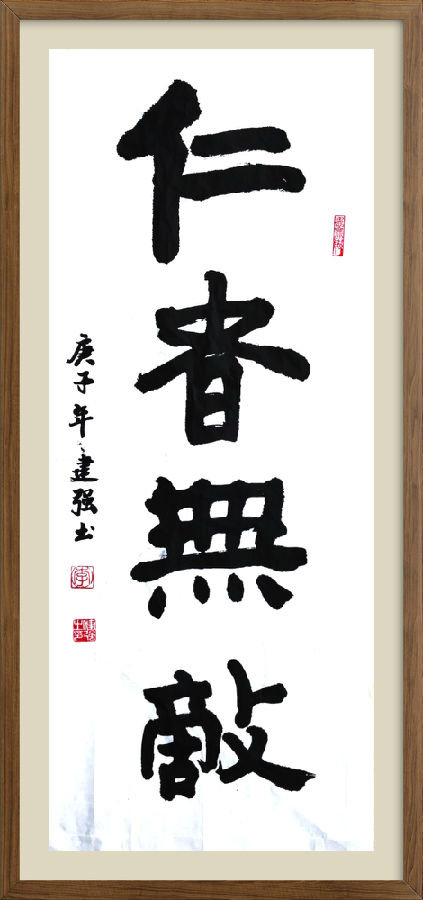 仁者無敵
庚子年建强书